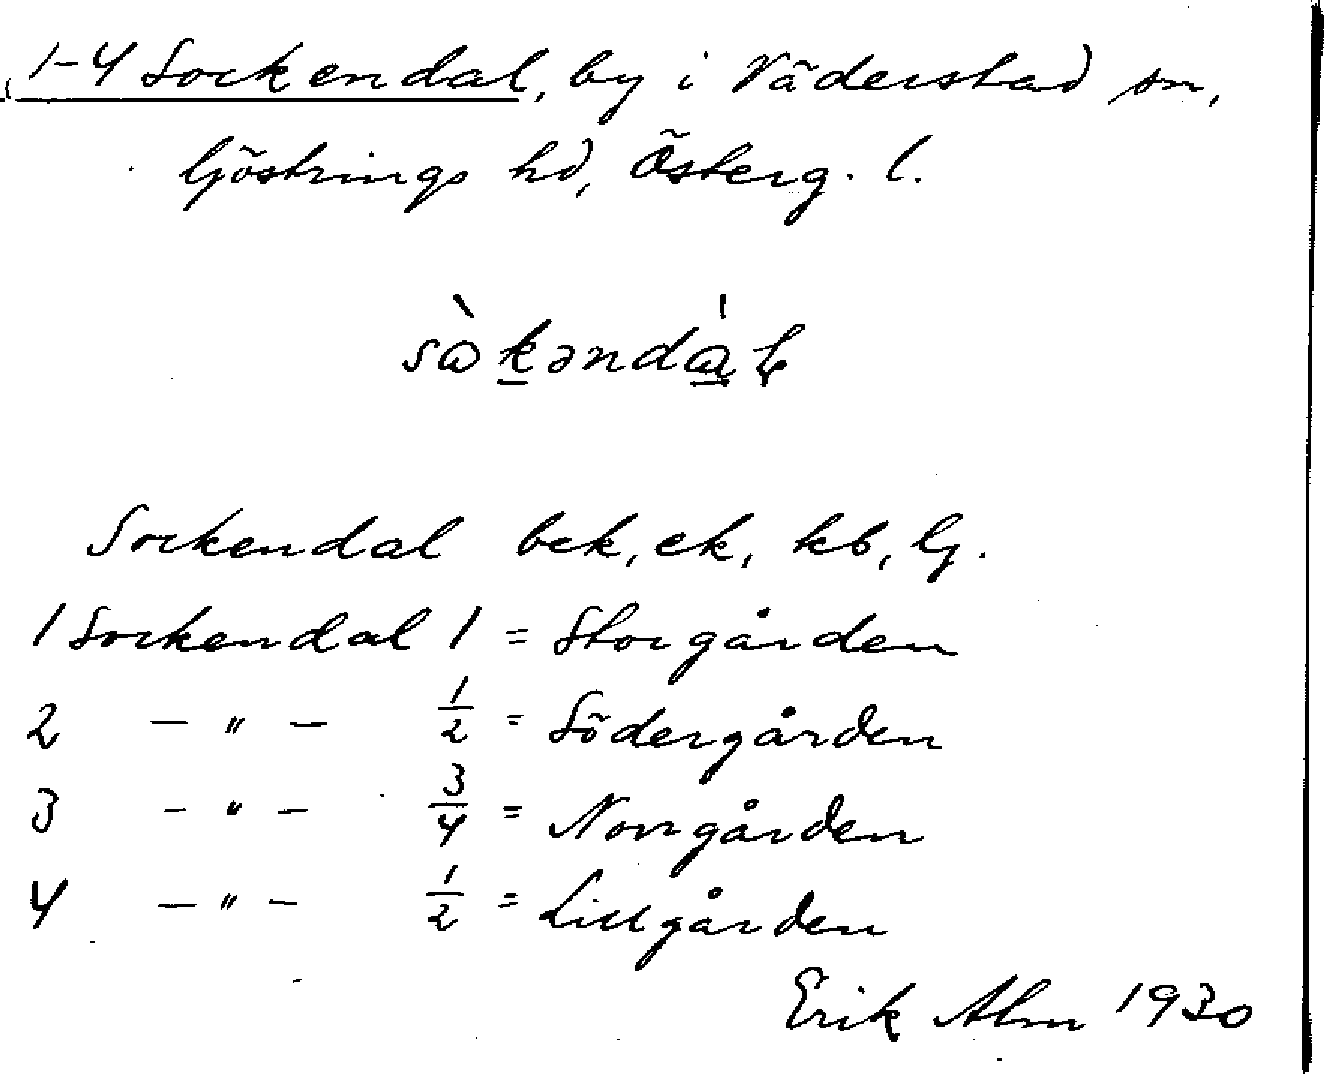 1-4 Sockendal, by i Väderstad sn,
Göstrings hd, Österg. l.
Sockendal bek, ek, kb, Gj.
1 Sockendal 1 = Storgården
2 - " - 1/2 = Södergården
3 - " - 3/4 = Norrgården
4 - " - 1/2 = Lillgården
Erik Alm 1930